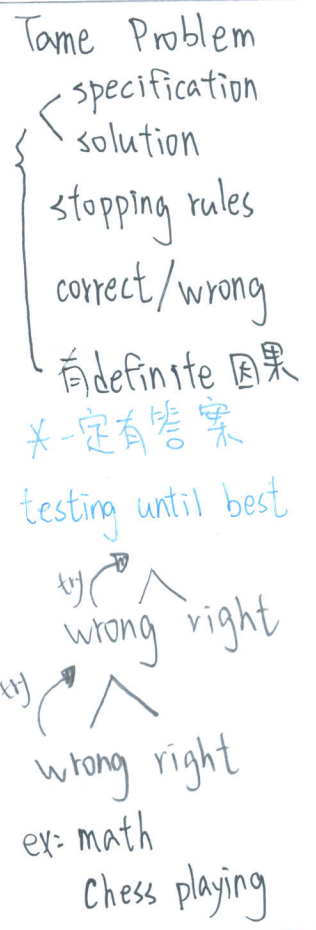 Tame Problem
specification
solution
stopping rules
correct/wrong
有definite 因果
*一定有答案
testing until best
try
wrong right
try
wrong right
ex: math
Chess playing